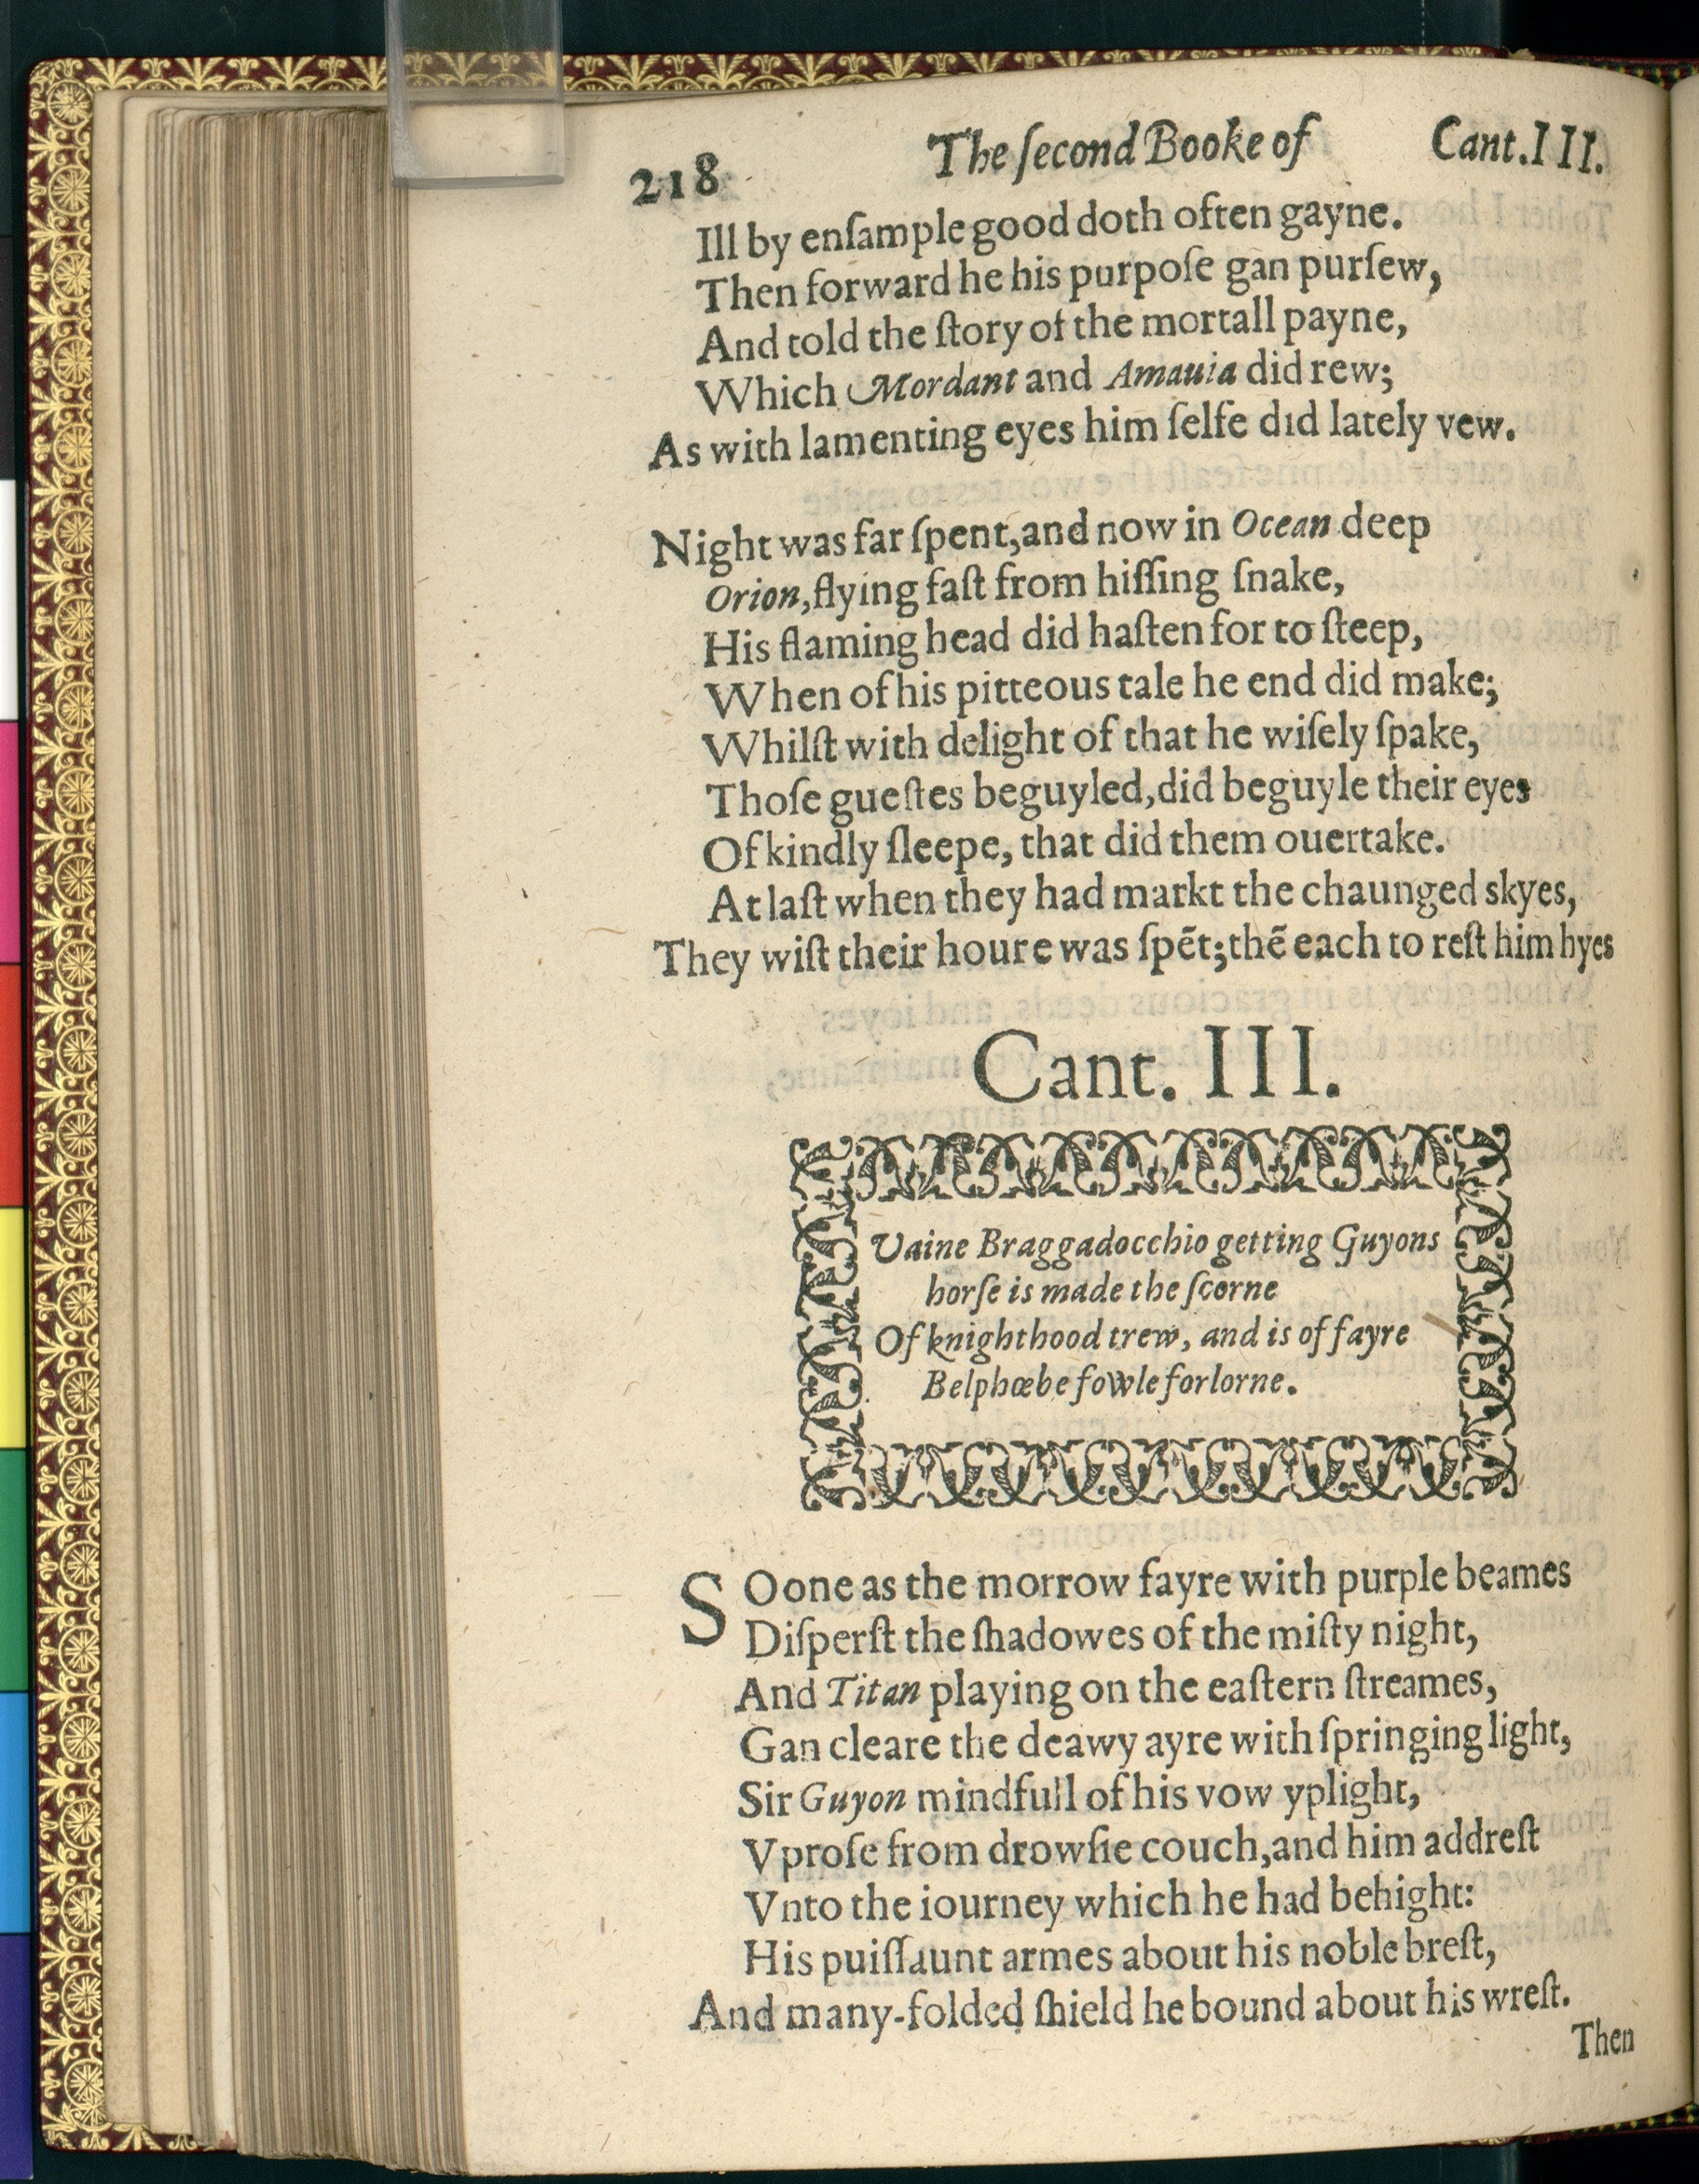 218 The ſecond Booke of Cant.III.
Ill by enſample good doth often gayne.
Then forward he his purpoſe gan purſew,
And told the ſtory of the mortall payne,
Which Mordant and Amauia did rew;
As with lamenting eyes him ſelfe did lately vew.
Night was far ſpent, and now in Ocean deep
Orion, flying faſt from hiſſing ſnake,
His flaming head did haſten for to ſteep,
When of his pitteous tale he end did make;
Whilſt with delight of that he wiſely ſpake,
Thoſe gueſtes beguyled, did beguyle their eyes
Of kindly ſleepe, that did them ouertake.
At laſt when they had markt the chaunged skyes,
They wiſt their houre was ſpẽt; thẽ each to reſt him hyes
Cant. III.
Vaine Braggadocchio getting Guyons
horſe is made the ſcorne
Of knighthood trew, and is of fayre
Belphœbe fowle forlorne.
SOone as the morrow fayre with purple beames
Diſperſt the ſhadowes of the miſty night,
And Titan playing on the eaſtern ſtreames,
Gan cleare the deawy ayre with ſpringing light,
Sir Guyon mindfull of his vow yplight,
Vproſe from drowſie couch, and him addreſt
Vnto the iourney which he had behight:
His puiſſaunt armes about his noble breſt,
And many-folded ſhield he bound about his wreſt.
Then